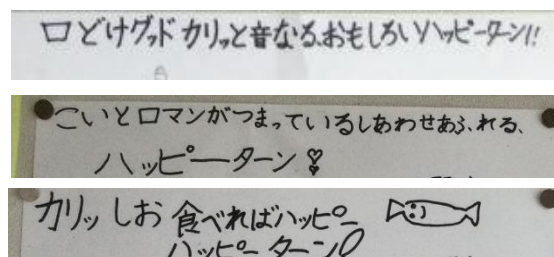 口どけグッド カリッと音なる、おもしろいハッピーターン!!
こいとロマンがつまっているしあわせあふれる、
ハッピーターン
カリッ しお 食べればハッピー
ハッピーターン